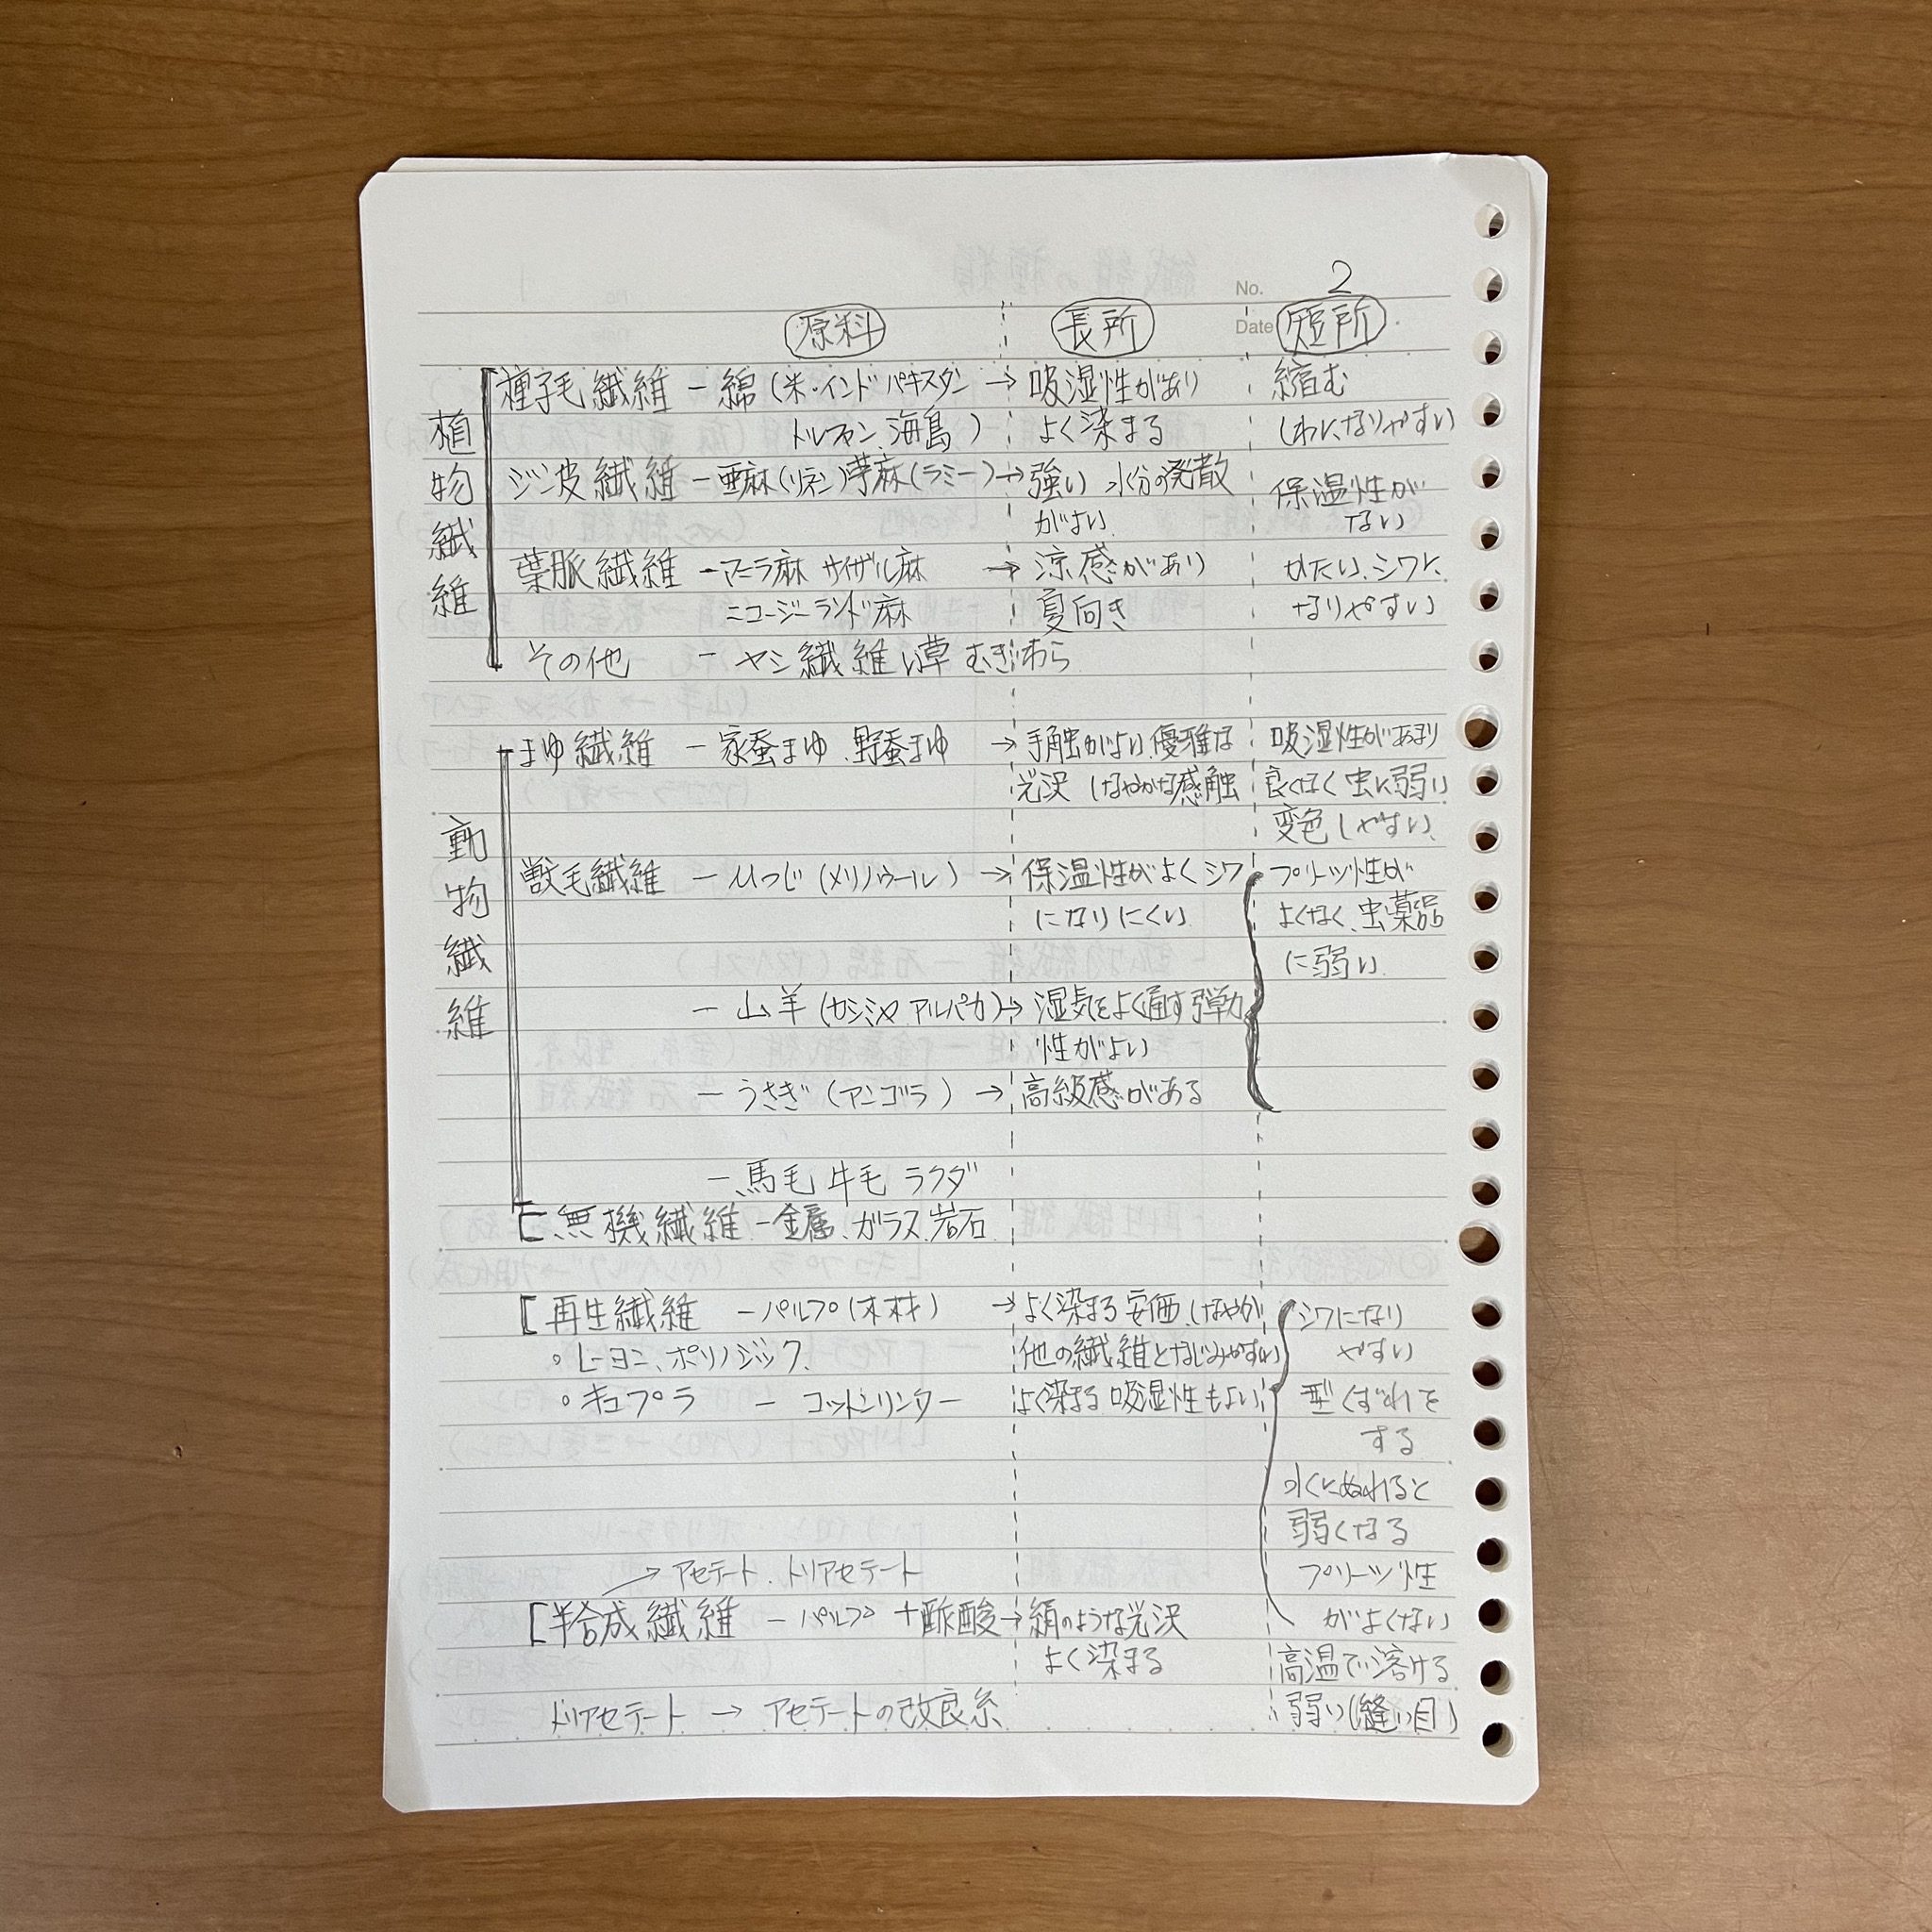 No. 2
Date
原料 長所 短所
植物繊維
種子毛繊維 － 綿(米・インド パキスタン → 吸湿性があり 縮む
トルファン、海島) よく染まる しわになりやすい
ジン皮繊維 － 亜麻(リネン)苧麻(ラミー) → 強い 水分の発散 保温性が
がよい ない
葉脈繊維 － マニラ麻 サイザル麻 → 涼感があり かたい、シワに
ニュージーランド麻 夏向き なりやすい
その他 － ヤシ繊維 い草 むぎわら
動物繊維
まゆ繊維 － 家蚕まゆ、野蚕まゆ → 手触がよい、優雅な 吸湿性があまり
光沢 しなやかな感触 良くなく 虫に弱い
変色しやすい、
獣毛繊維 － ひつじ(メリノウール) → 保温性がよくシワ プリーツ性が
になりにくい よくなく、虫、薬品
に弱い、
－ 山羊(カシミヤ アルパカ) → 湿気をよく通す 弾力
性がよい
－ うさぎ(アンゴラ) → 高級感がある
－ 馬毛 牛毛 ラクダ
無機繊維 － 金属、ガラス、岩石
再生繊維 － パルプ(木材) → よく染まる 安価、しなやか シワになり
。レーヨン、ポリノジック、 他の繊維となじみやすい やすい
。キュプラ － コットンリンター よく染まる 吸湿性もよい 型くずれを
する
水にぬれると
弱くなる
→ アセテート、トリアセテート プリーツ性
半合成繊維 － パルプ ＋酢酸 → 絹のような光沢 がよくない
よく染まる 高温で溶ける
トリアセテート → アセテートの改良糸 弱い(縫い目)